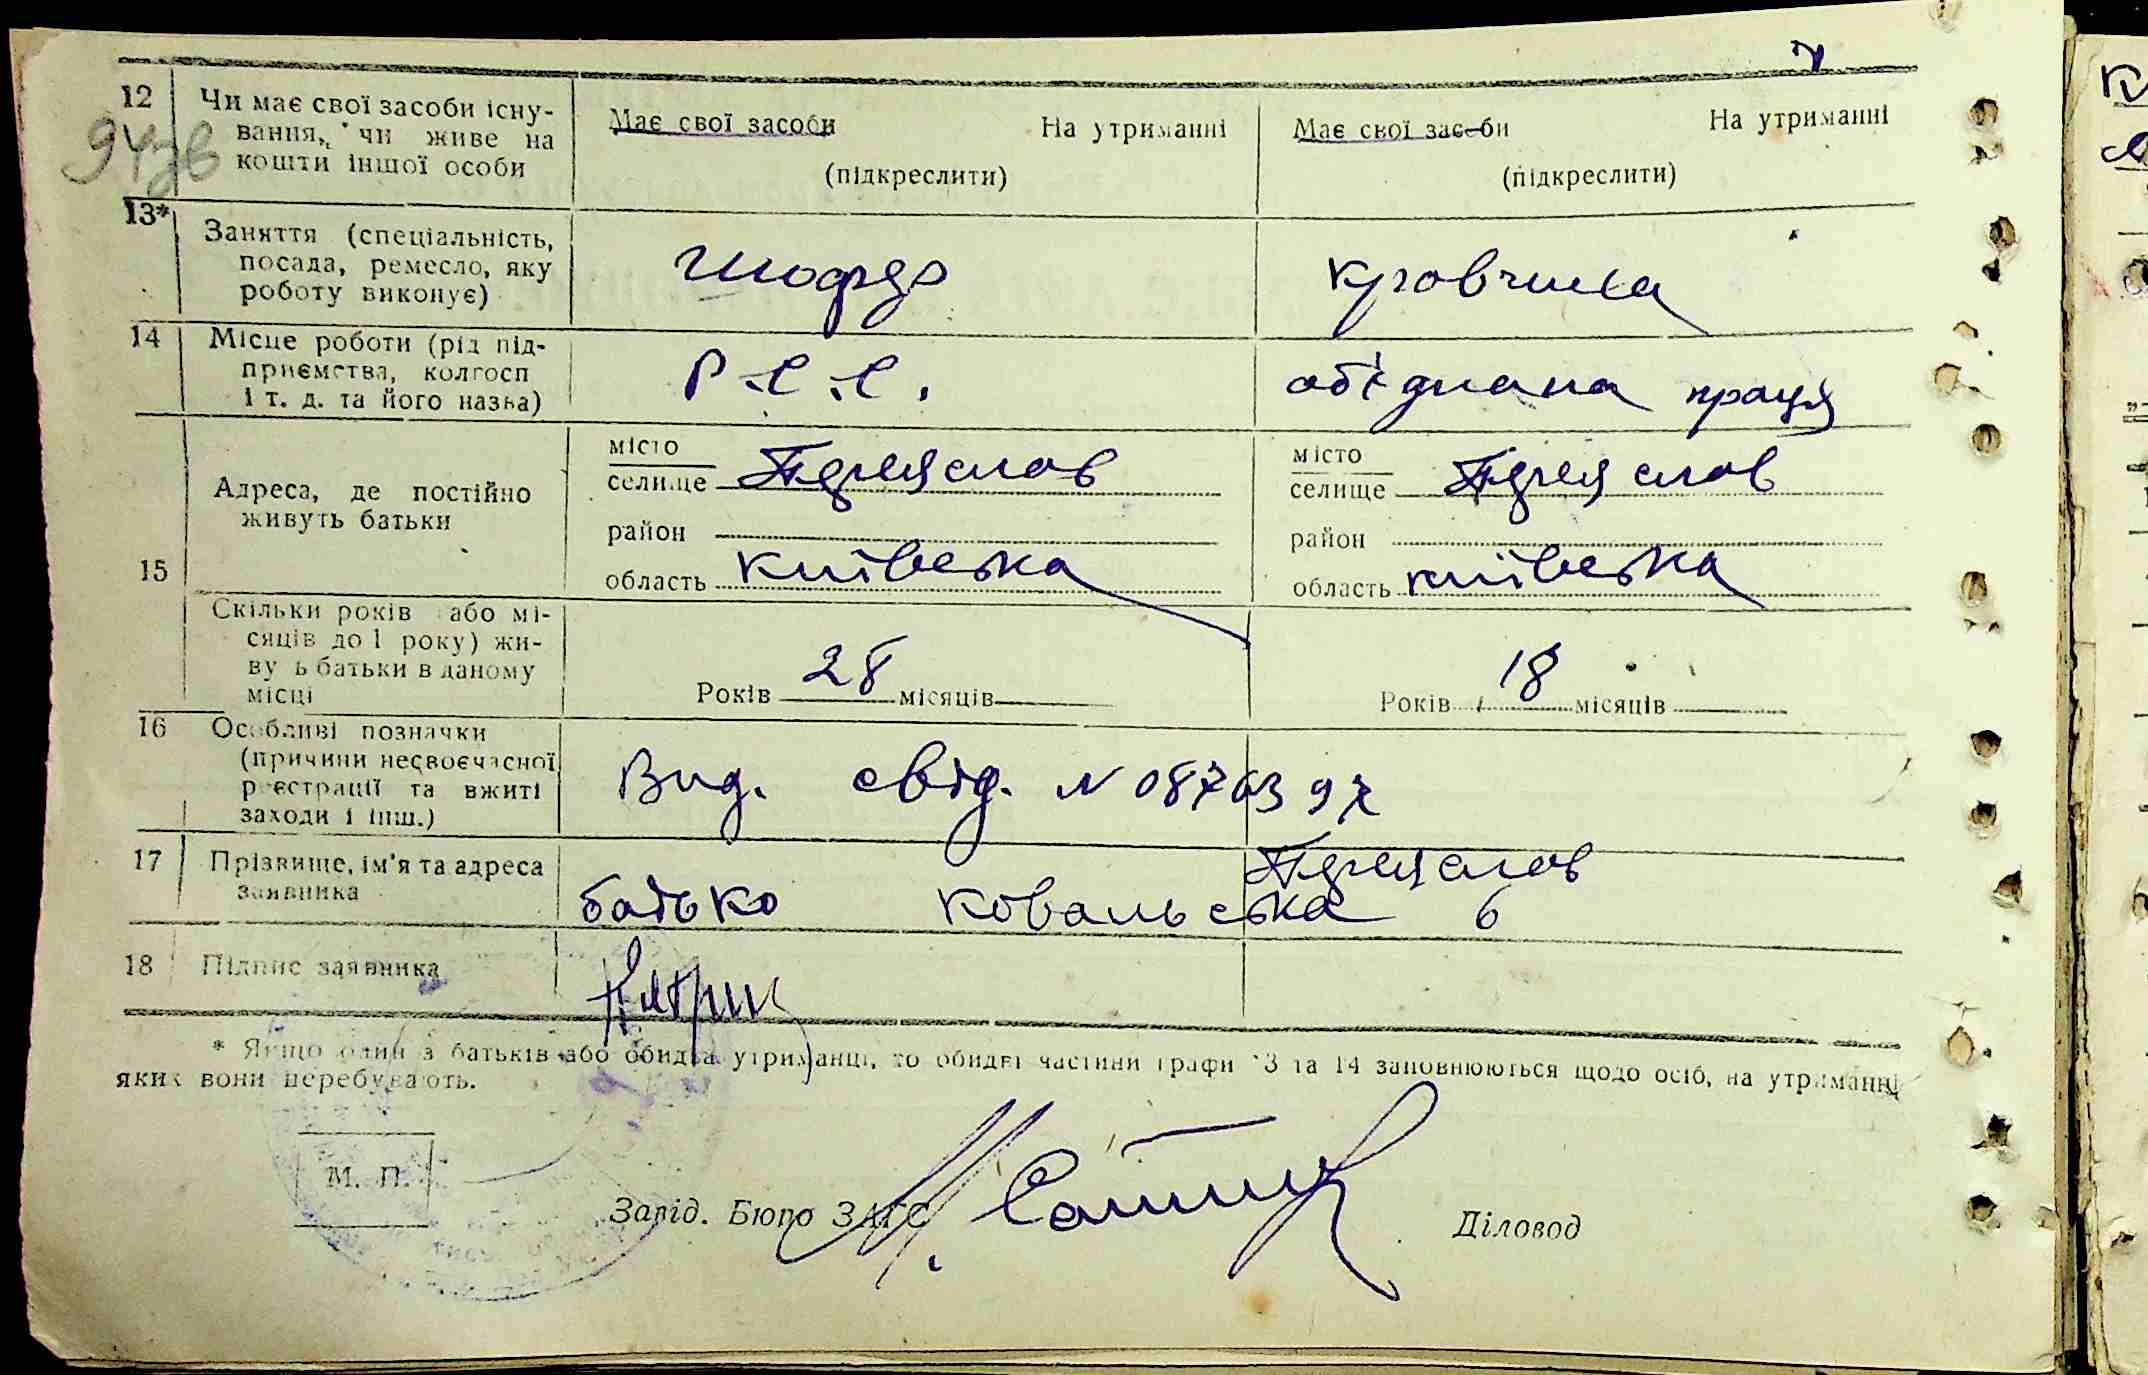 12 Чи має свої засоби існу-
вання, чи живе на
кошти іншої особи
94зв
Має свої засоби На утриманні
(підкреслити)
Має свої засоби На утриманні
(підкреслити)
13* Заняття (спеціальність,
посада, ремесло, яку
роботу виконує)
шофер
кровчиха
14 Місце роботи (рід під-
приємства, колгосп
і т. д. та його назва)
Р.С.С.
об'єднана праця
15 Адреса, де постійно
живуть батьки
місто
селище Переяслов
район
область київська
місто
селище Переяслов
район
область київська
Скільки років або мі-
сяців до 1 року) жи-
ву ь батьки в даному
місці
Років 28 місяців
Років 18 місяців
16 Особливі позначки
(причини несвоєчасної
реєстрації та вжиті
заходи і інш.)
Вид. свід. N 0876397
17 Прізвище, ім'я та адреса
заявника
Переяслов
батько ковальська 6
18 Підпис заявника
* Якщо один з батьків або обидва утриманці, то обидві частини графи 13 та 14 заповнюються щодо осіб, на утриманні
яких вони перебувають.
М. П.
Завід. Бюро ЗАГС
Діловод